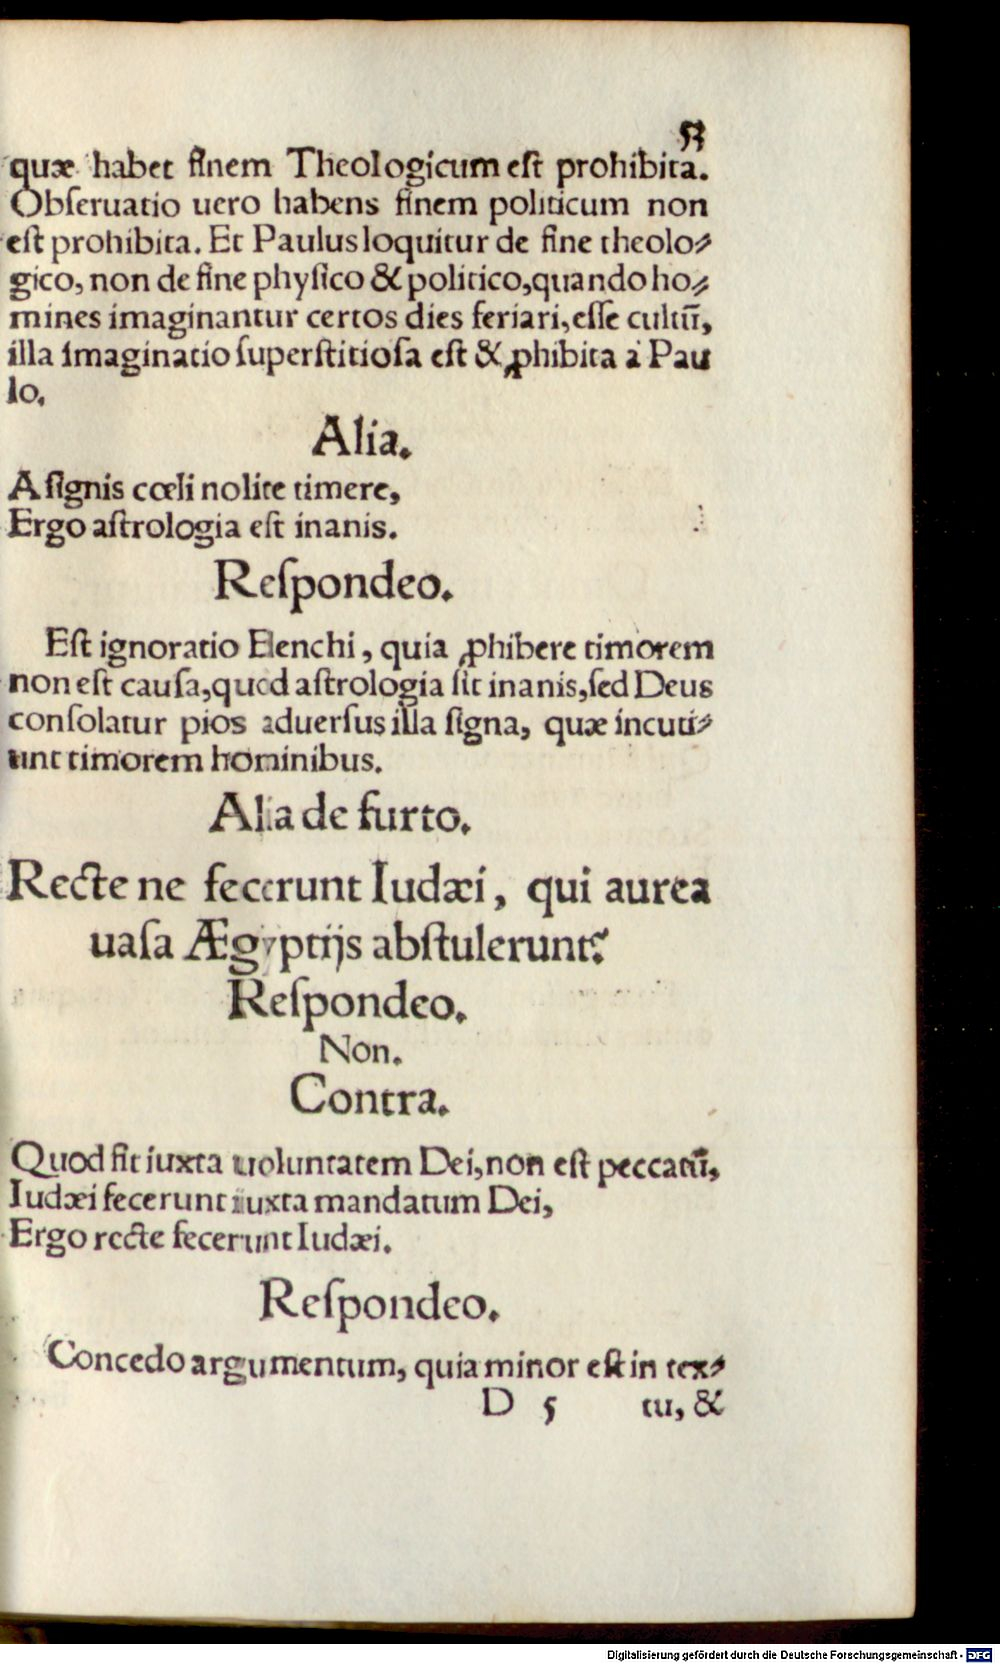 53
quæ habet finem Theologicum est prohibita.
Obseruatio uero habens finem politicum non
est prohibita. Et Paulus loquitur de fine theolo⸗
gico, non de fine physico & politico, quando ho⸗
mines imaginantur certos dies feriari, esse cultū,
illa imaginatio superstitiosa est & ꝓhibita à Pau
lo.
Alia.
A signis cœli nolite timere,
Ergo astrologia est inanis.
Respondeo.
Est ignoratio Elenchi, quia ꝓhibere timorem
non est causa, quod astrologia sit inanis, sed Deus
consolatur pios aduersus illa signa, quæ incuti⸗
unt timorem hominibus.
Alia de furto.
Recte ne fecerunt Iudæi, qui aurea
uasa Ægyptijs abstulerunt?
Respondeo.
Non.
Contra.
Quod fit iuxta uoluntatem Dei, non est peccatū,
Iudæi fecerunt iuxta mandatum Dei,
Ergo recte fecerunt Iudæi.
Respondeo.
Concedo argumentum, quia minor est in tex⸗
D 5 tu, &
Digitalisierung gefördert durch die Deutsche Forschungsgemeinschaft - DFG